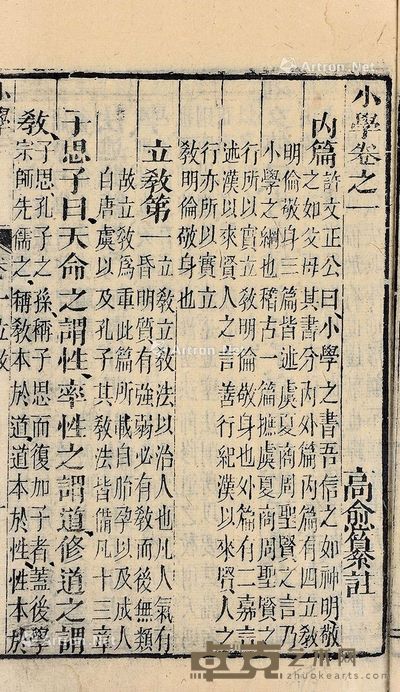 小學卷之一
高愈纂註
內篇
許文正公曰小學之書吾信之如神明敬
之如父母其書分內外篇內篇有四立敎
明倫敬身三篇皆述虞夏商周聖賢之言乃
小學之綱也稽古一篇摭虞夏商周聖賢之
行所以實立敎明倫敬身也外篇有二嘉言
述漢以來賢人之言善行紀漢以來賢人之
行亦所以實立
敎明倫敬身也
立敎第一
立敎立敎法以治人也凡人氣有
昏明質有強弱必有敎而後無類
故立敎爲重此篇所載自胎孕以及成人
自唐虞以及孔子其敎法皆備凡十三章
子思子曰天命之謂性率性之謂道修道之謂
敎
子思孔子之孫稱子思而復加子者蓋後學
宗師先儒之稱敎本於道道本於性性本於
Artron.Net
www.zhuokearts.com